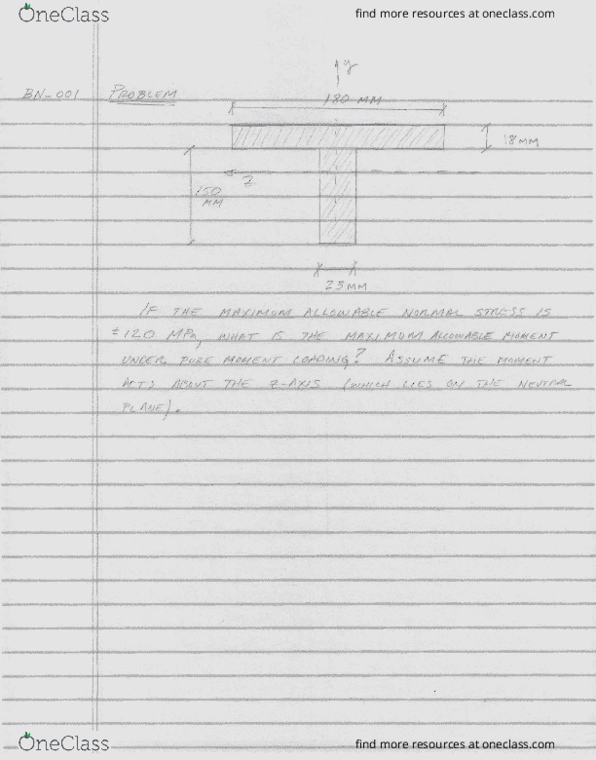 OneClass
find more resources at oneclass.com
y
BN-001 PROBLEM
180 MM
18 MM
Z
150
MM
25 MM
IF THE MAXIMUM ALLOWABLE NORMAL STRESS IS
±120 MPa, WHAT IS THE MAXIMUM ALLOWABLE MOMENT
UNDER PURE MOMENT LOADING? ASSUME THE MOMENT
ACTS ABOUT THE Z-AXIS (WHICH LIES ON THE NEUTRAL
PLANE).
OneClass
find more resources at oneclass.com